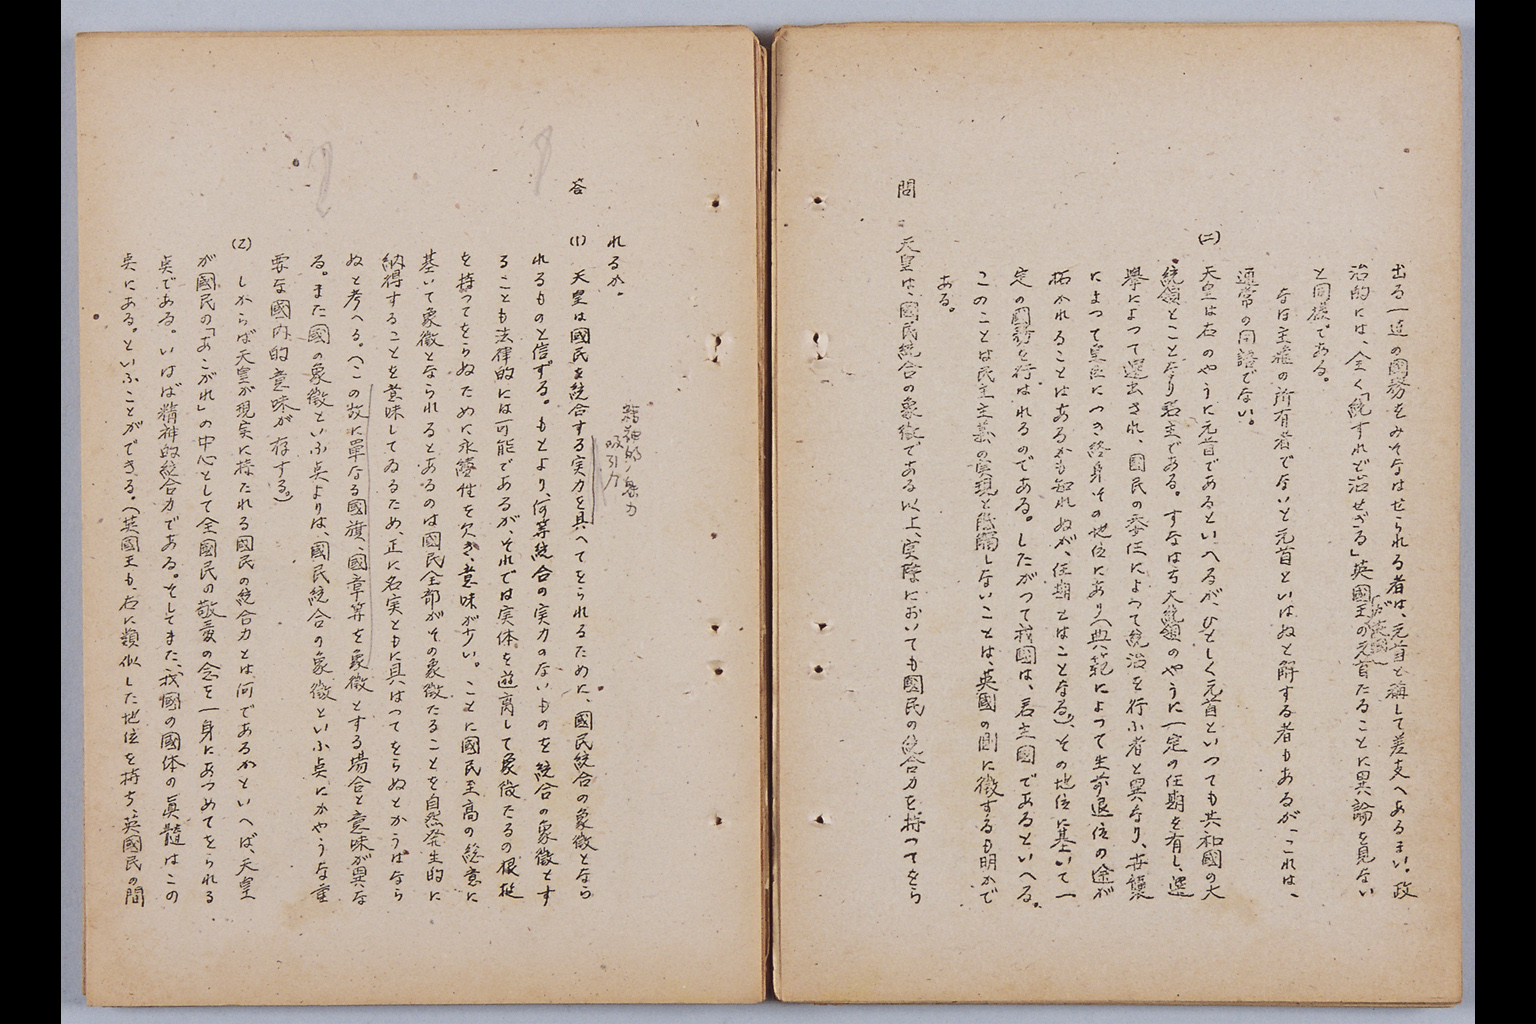 出る一連の國務をみそなはせられる者は、元首と稱して差支へあるまい。政
治的には、全く「統すれど治せざる」英國王の元首たることに異論を見ない
が英國
と同樣である。
なほ主權の所有者でないと元首といはぬと解する者もあるが、これは、
通常の用語でない。
(二)
天皇は右のやうに元首であるといへるが、ひとしく元首といつても共和國の大
統領とことなり君主である。すなはち大統領のやうに一定の任期を有し、選
擧によつて選出され、國民の委任によつて統治を行ふ者と異なり、世襲
によつて皇位につき終身その地位にあり(典範によつて生前退位の途が
拓かれることはあるかも知れぬが、任期とはことなる)、その地位に基いて一
定の國務を行はれるのである。したがつて我國は、君主國であるといへる。
このことは民主主義の実現と牴觸しないことは、英國の例に徴するも明かで
ある。
問 天皇は、國民統合の象徴である以上、実際においても國民の統合力を持つてをら
れるか。
精神的ノ魅力
吸引力
答 (1) 天皇は國民を統合する実力を具へてをられるために、國民統合の象徴となら
れるものと信ずる。もとより、何等統合の実力のないものを統合の象徴とす
ることも法律的には可能であるが、それでは実体を遊離して象徴たるの根拠
を持つてをらぬために永續性を欠き、意味が少い。ことに國民至高の総意に
基いて象徴となられるとあるのは國民全部がその象徴たることを自然発生的に
納得することを意味してゐるため、正に名実ともに具はつてをらぬとかうはなら
ぬと考へる。(この故に單なる國旗、國章等を象徴とする場合と意味が異な
る。また國の象徴といふ点よりは、國民統合の象徴といふ点にかやうな重
要な國内的意味が存する。)
(2) しからば天皇が現実に持たれる國民の統合力とは何であるかといへば、天皇
が國民の「あこがれ」の中心として全國民の敬愛の念を一身にあつめてをられる
点である。いはば精神的統合力である。そしてまた、我國の國体の真髄はこの
点にある。といふことができる。(英國王も、右に類似した地位を持ち、英國民の間